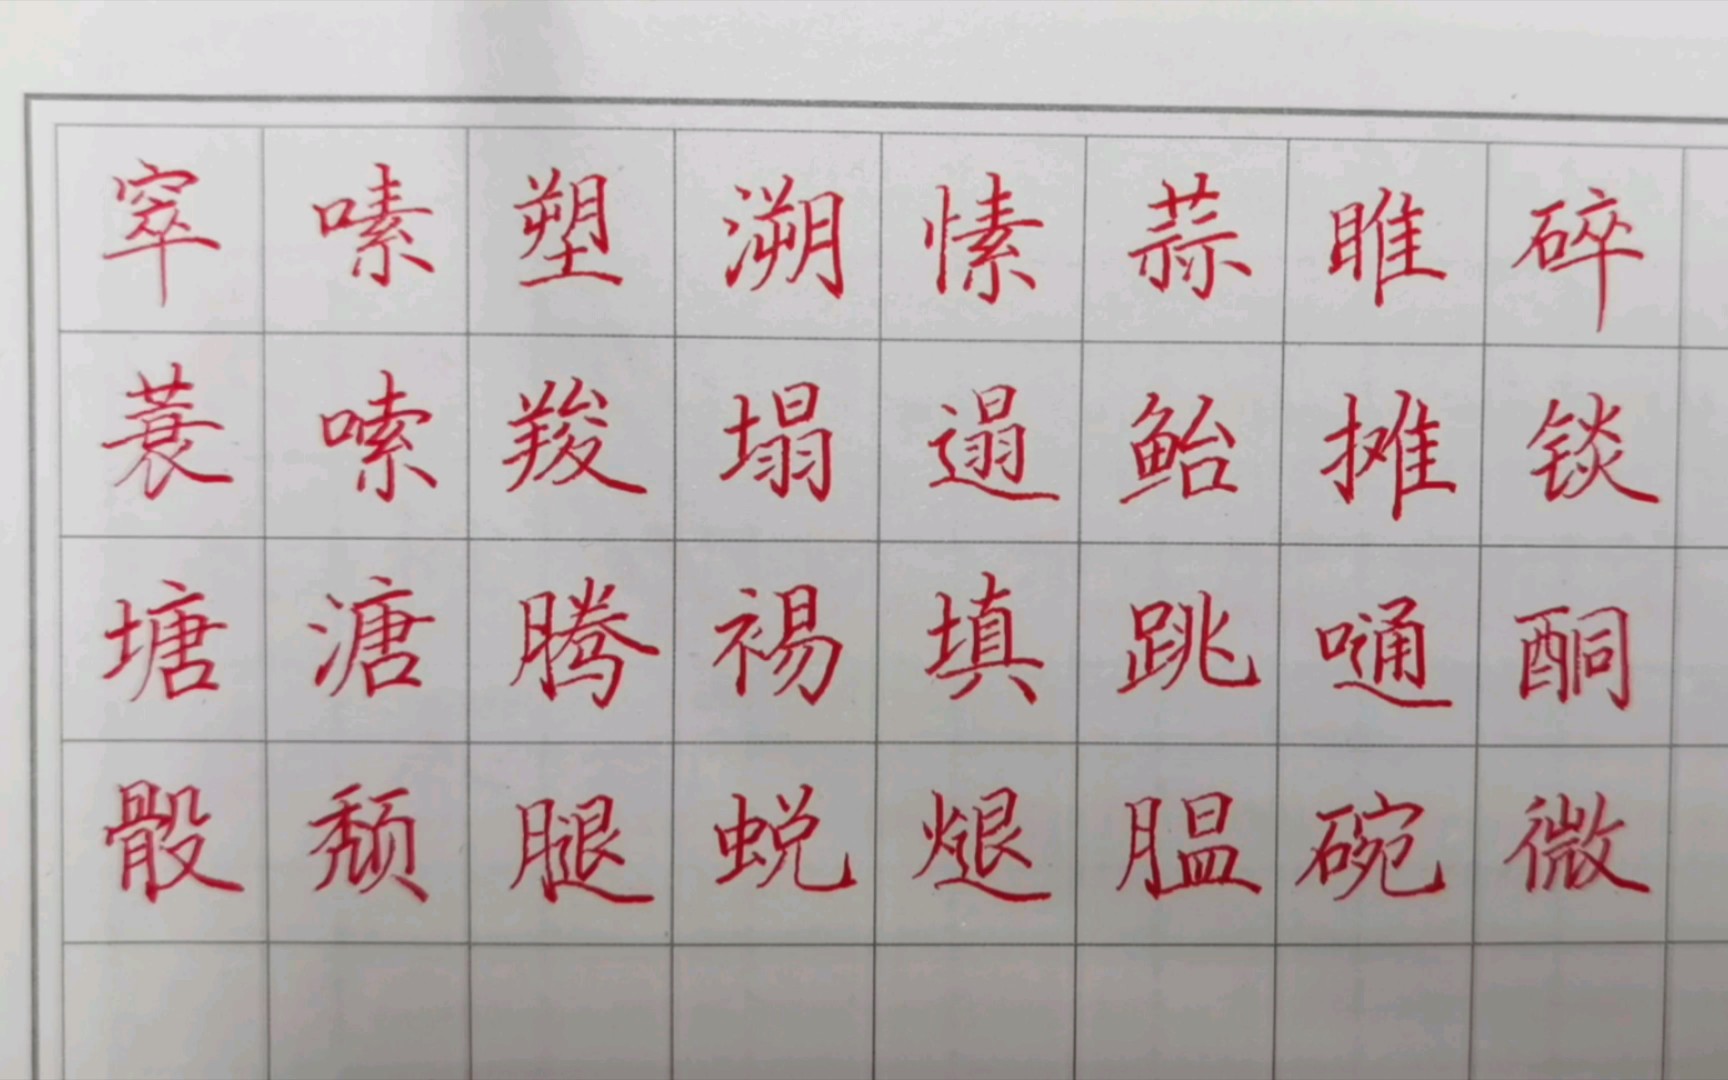 窣嗉塑溯愫蒜睢碎
蓑嗦羧塌遢鲐摊锬
塘溏腾裼填跳嗵酮
骰颓腿蜕煺腽碗微